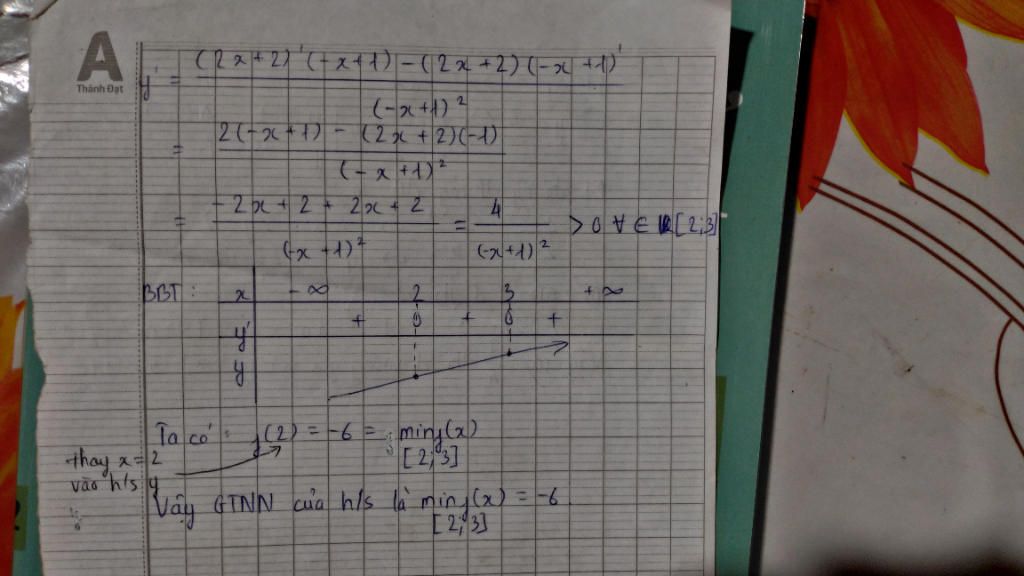 A
Thành Đạt
y' = ((2x+2)'(-x+1) - (2x+2)(-x+1)') / (-x+1)²
= (2(-x+1) - (2x+2)(-1)) / (-x+1)²
= (-2x+2+2x+2) / (-x+1)² = 4 / (-x+1)² > 0 ∀ ∈ [2;3]
BBT: x -∞ 2 3 +∞
y' + 0 + 0 +
y
Ta có: y(2) = -6 = min y(x)
[2;3]
thay x=2
vào h/s y
Vậy GTNN của h/s là min y(x) = -6.
[2;3]